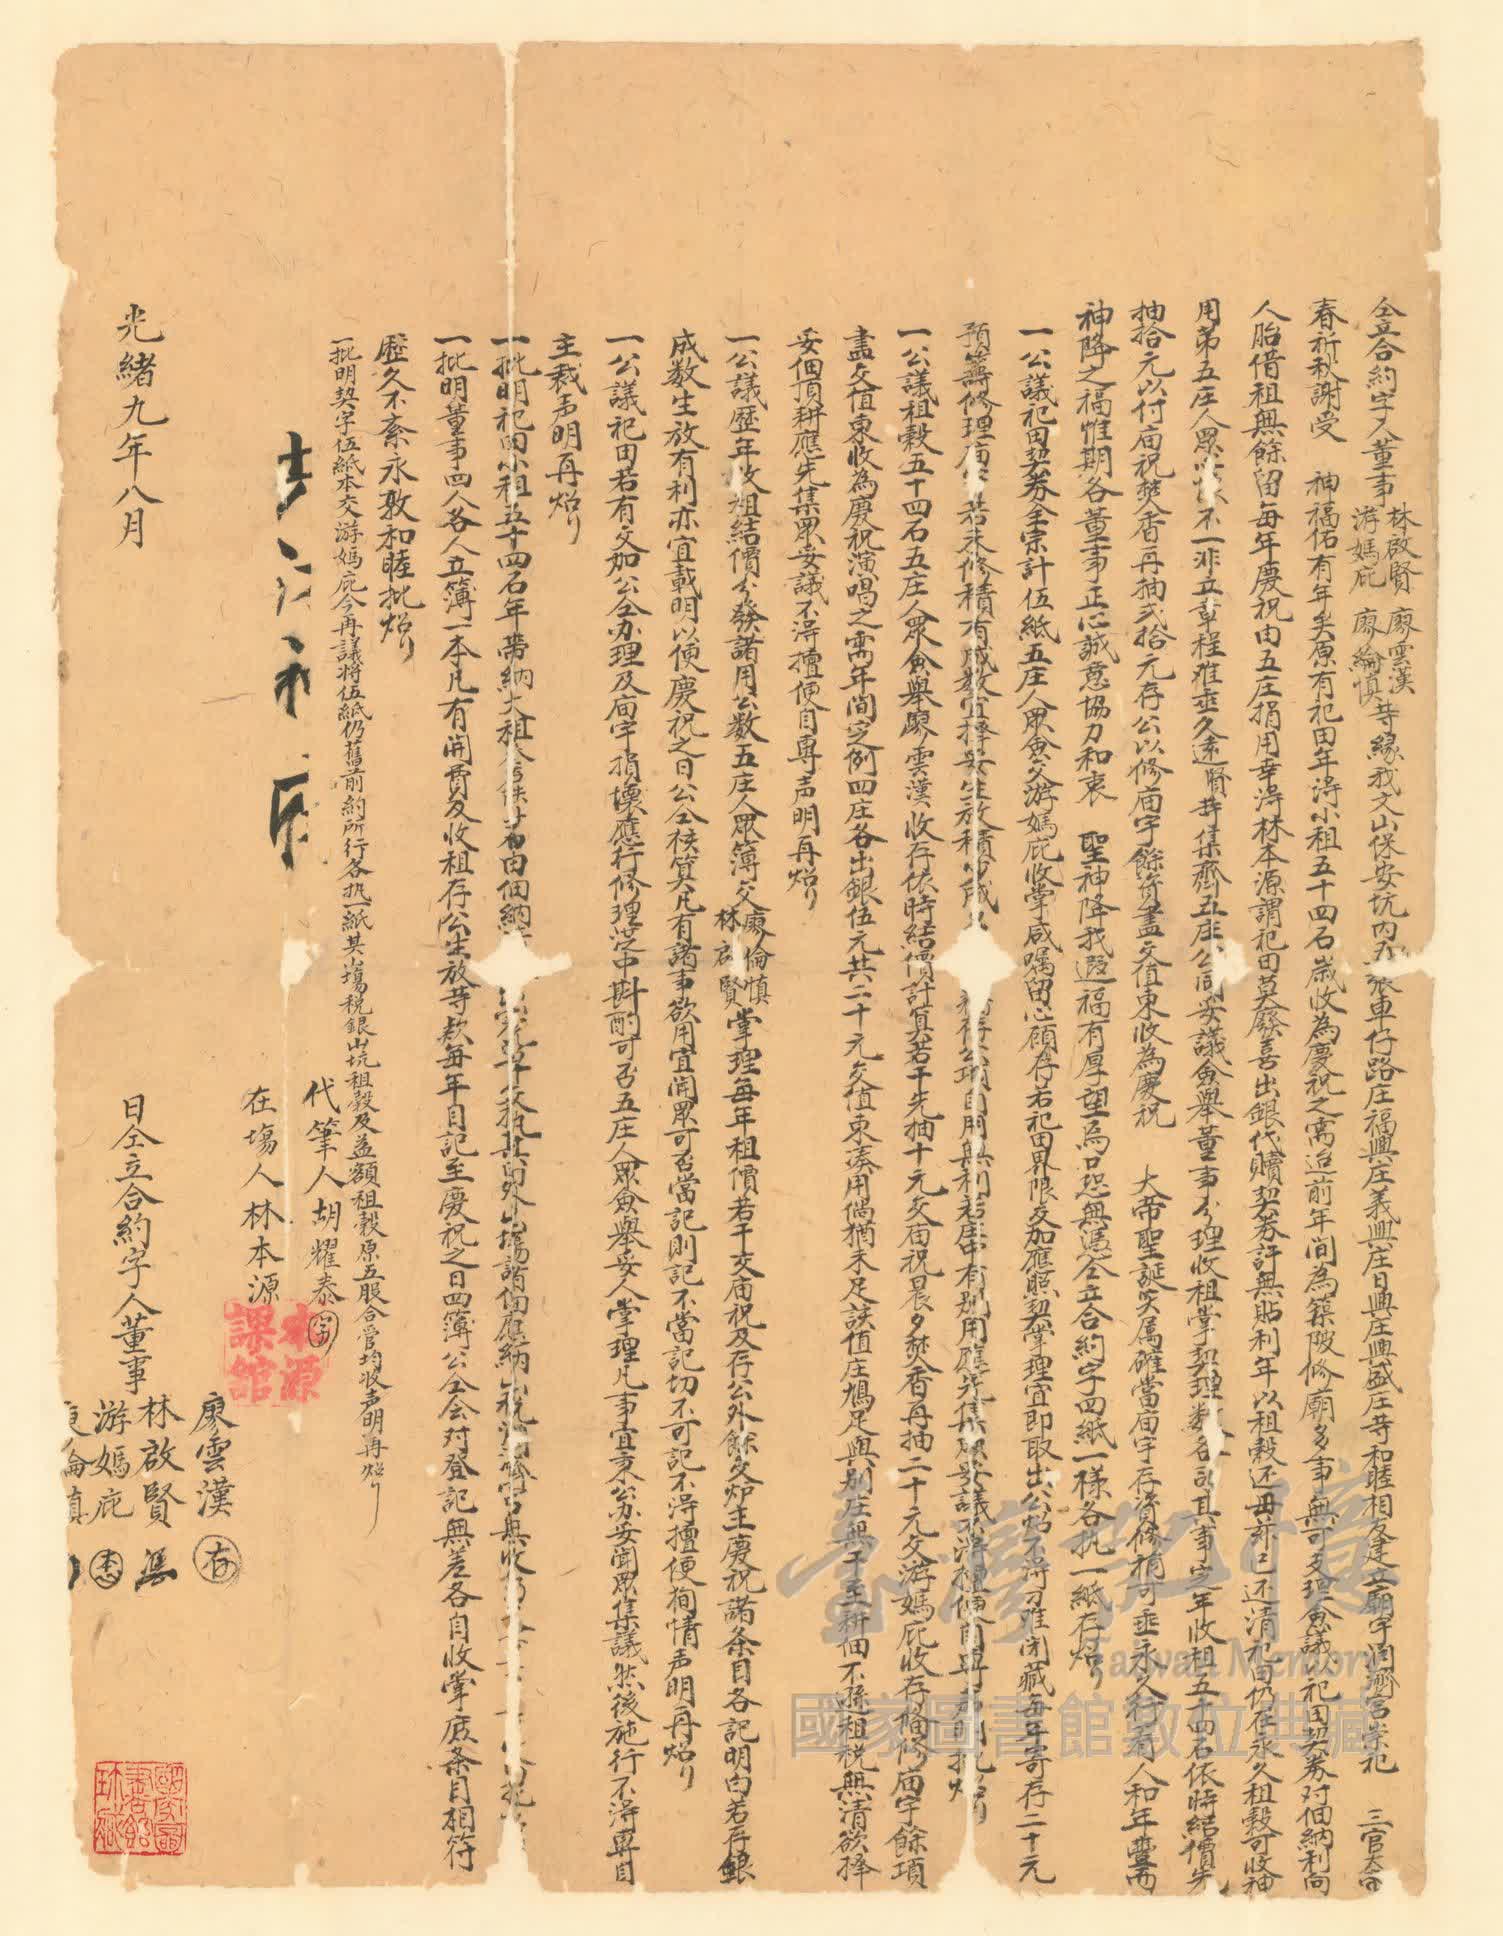 仝立合約字人董事林啟賢 廖雲漢 游媽庇 廖綸慎 等緣我文山保安坑內 張車仔路庄福興庄義興庄日興庄興盛庄等和睦相友建立廟宇 濟宮崇祀 三官大帝
春祈秋謝受 神福佑有年矣原有祀田年淂小租五十四石歲收為慶祝之需迨前年間為築陂修廟多事無可支理僉議以祀田契券对佃納利向
人胎借租無餘留每年慶祝由五庄捐用幸淂林本源謂祀田莫廢喜出銀代贖契券許無貼利年以租穀还毋 已还清祀田仍在永久租穀可收神
用第五庄人眾 不一非立章程难垂久遠賢等集齊五庄公同妥議僉舉董事分理收租掌契理數各司其事定年收租五十四石依時結價先
抽拾元以付庙祝焚香再抽弍拾元存公以修庙宇餘 盡交值東收為慶祝 大帝聖誕 属確當庙宇存資修稍可垂永久行看人和年豐而
神降之福惟期各董事正心誠意協力和衷 聖神降我遐福有厚望焉口恐無憑仝立合約字四紙一樣各执一紙存炤
一公議祀田契券全宗計伍紙五庄人眾僉交游媽庇收掌咸嘱留心顧存若祀田界限交加應照契掌理宜即取出公炤不淂刁难闭藏每年寄存二十元
預籌修理庙宇若未修積有成数宜择妥生放積少成多 存公項自用無利若庄中有別用應先集眾妥議不淂擅便自專声明批炤
一公議租穀五十四石五庄人眾僉舉廖雲漢收存依時結價計算若干先抽十元交庙祝晨夕焚香再抽二十元交游媽庇收存偹修庙宇餘項
盡交值東收為慶祝演唱之需年間定例四庄各出銀伍元共二十元交值東湊用倘猶未足該值庄鳩足與別庄無干至耕佃不遜租税無清欲择
妥佃頂耕應先集眾妥議不淂擅便自專声明再炤
一公議歷年收租結價分發諸用公数五庄人眾簿交廖倫慎 林啟賢 掌理每年租價若干交庙祝及存公外餘交炉主慶祝諸条目各記明白若存銀
成数生放有利亦宜載明以便慶祝之日公仝核算凡有諸事欲用宜闻眾可否當記則記不當記切不可記不淂擅便徇情声明再炤
一公議祀田若有交加公仝办理及庙宇損壞應行修理定中斟酌可否五庄人眾僉舉妥人掌理凡事宜秉公办妥闻眾集議然後施行不淂專自
主裁声明再炤
一批明祀田小租五十四石年帶納大租 由佃納
一批明董事四人各人立簿一本凡有開費及收租存公生放等款每年目記至慶祝之日四簿公仝会对登記無差各自收掌庶条目相符
歷久不紊永敦和睦批炤
一批明契字伍紙本交游媽庇今再議將伍紙仍舊前約所行各执一紙其山塲税銀山坑租穀及益額租穀原五股合管均收声明再炤
代筆人胡耀泰
在塲人林本源
本源課館
廖雲漢
林啟賢
游媽庇
廖倫慎
光緒九年八月 日仝立合約字人董事
國家圖書館珍藏
臺灣記憶
Taiwan Memory
國家圖書館數位典藏